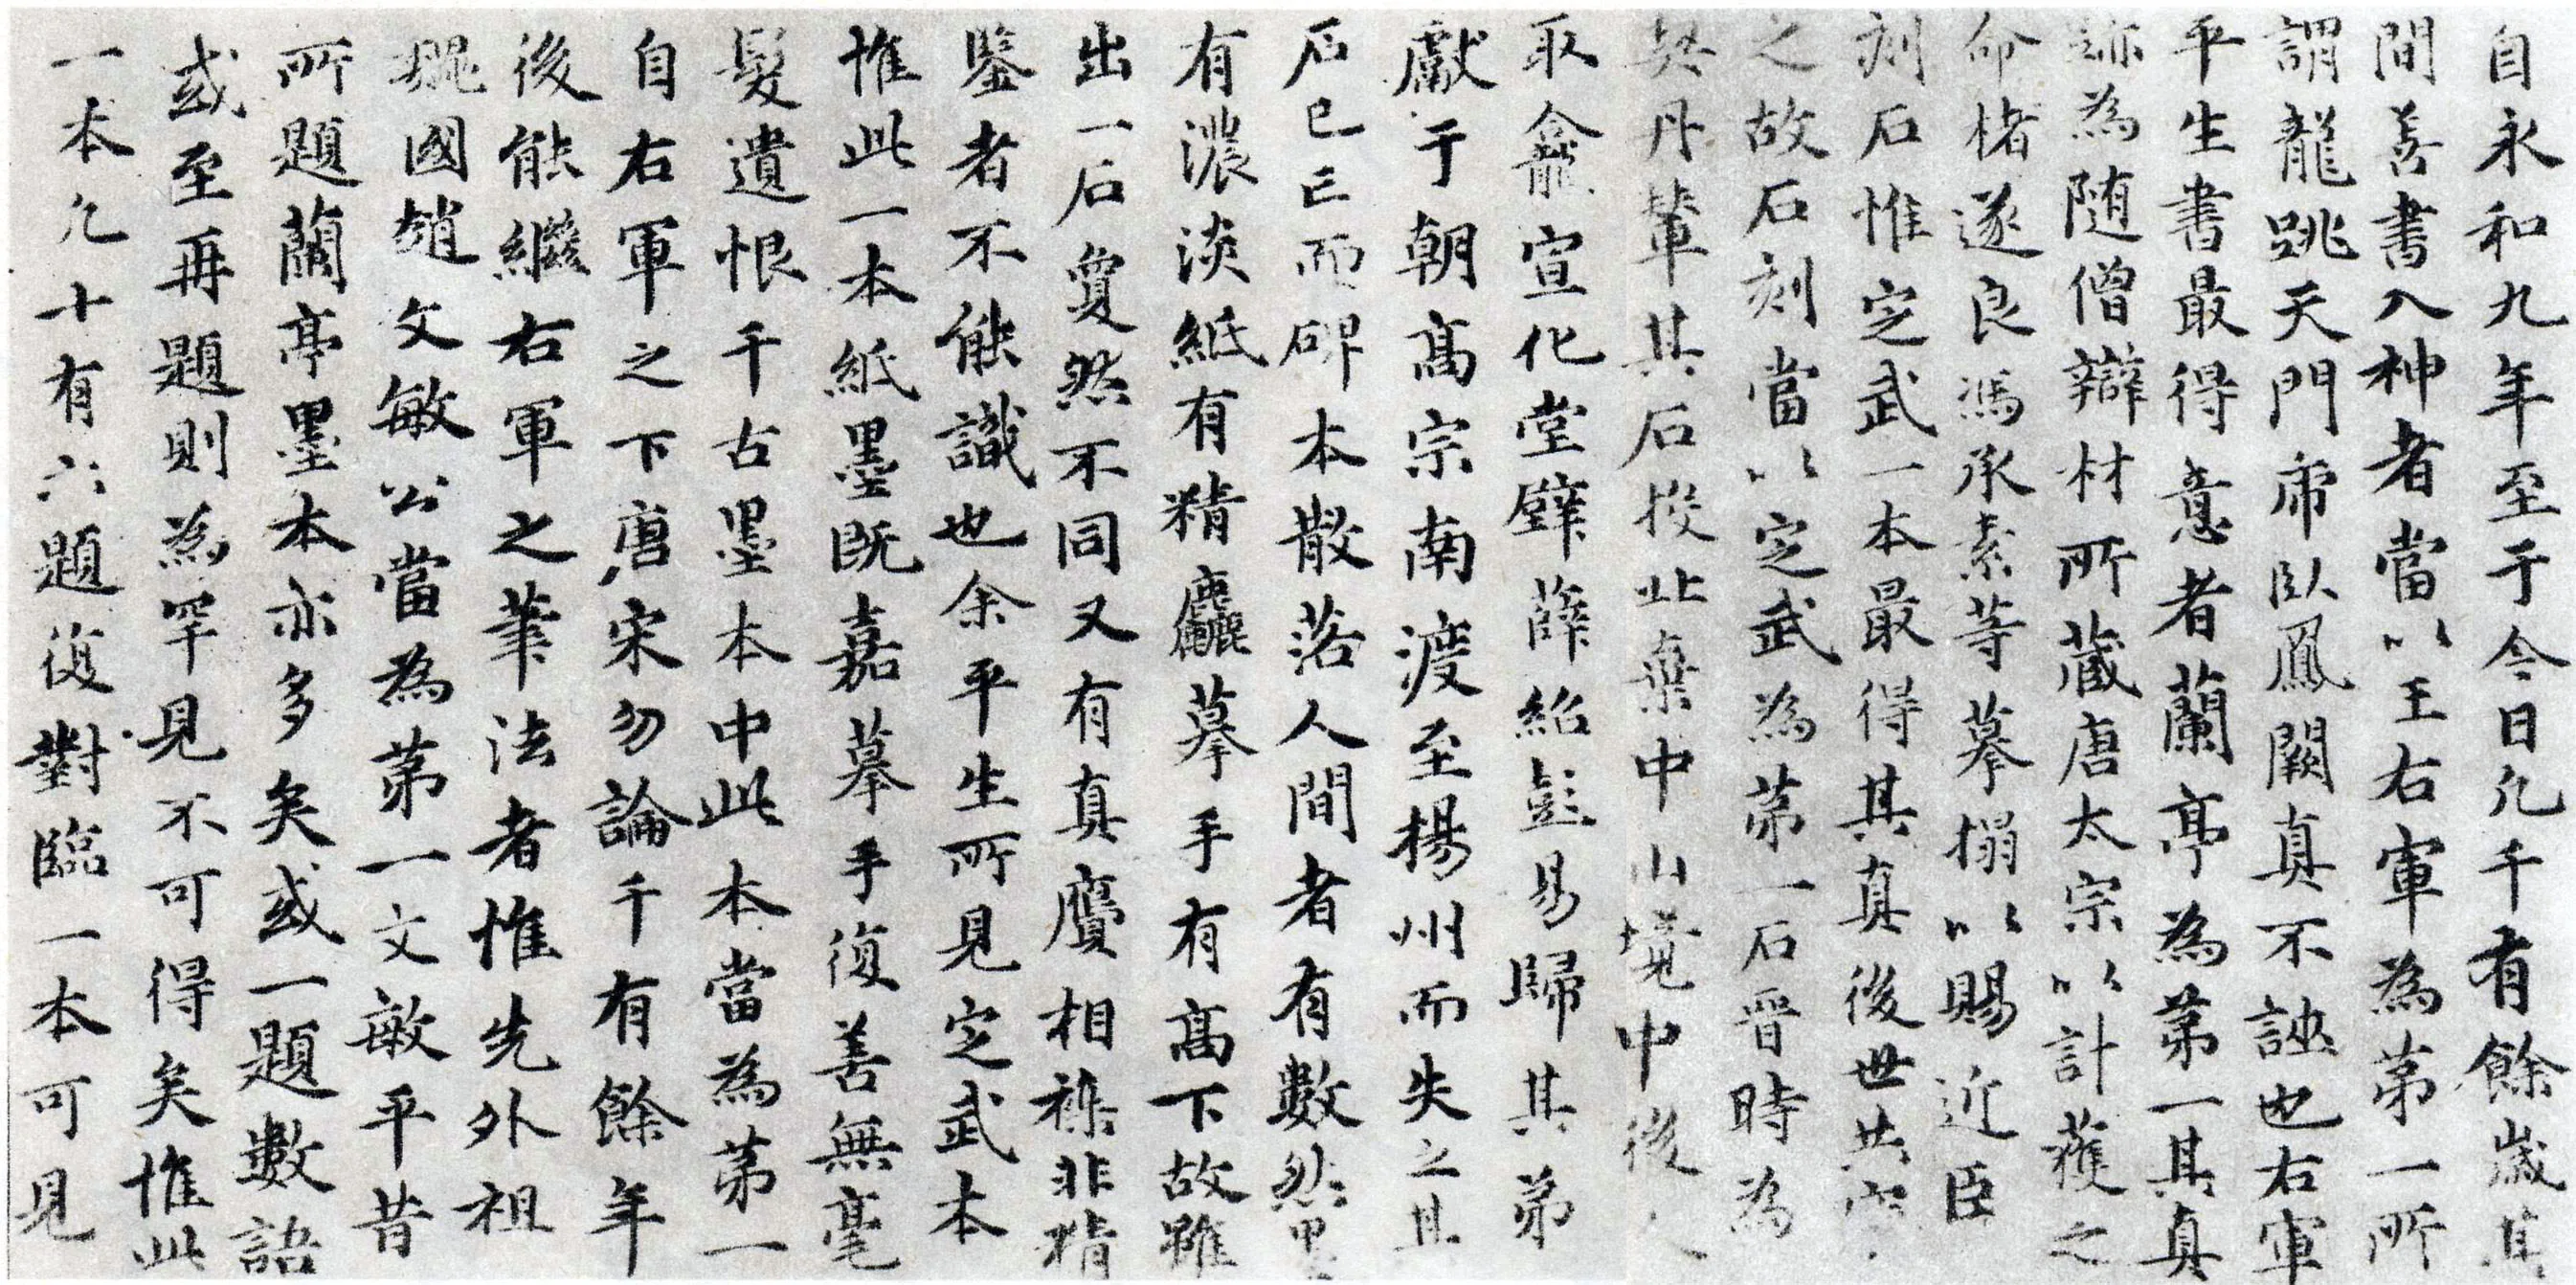 自永和九年至于今日凡千有餘歲其
間善書入神者當以王右軍為第一所
謂龍跳天門虎臥鳳闕真不誣也右軍
平生書最得意者蘭亭為第一其真
跡為随僧辯材所藏唐太宗以計獲之
命楮遂良馮承素等摹搨以賜近臣
刻石惟定武一本最得其真後世共
之故石刻當以定武為第一石晋時為
契丹輦其石投北棄中山境中後人
取龕宣化堂壁薛紹彭易歸其弟
獻于朝高宗南渡至楊州而失之且
石已亡而碑本散落人間者有數然
有濃淡紙有精麤摹手有高下故雖
出一石敻然不同又有真贋相襍非精
鑒者不能識也余平生所見定武本
惟此一本紙墨既嘉摹手復善無毫
髮遺恨千古墨本中此本當為第一
自右軍之下唐宋勿論千有餘年
後能繼右軍之筆法者惟先外祖
魏國趙文敏公當為第一文敏平昔
所題蘭亭墨本亦多矣或一題數語
或至再題則為罕見不可得矣惟此
一本凡十有六題復對臨一本可見